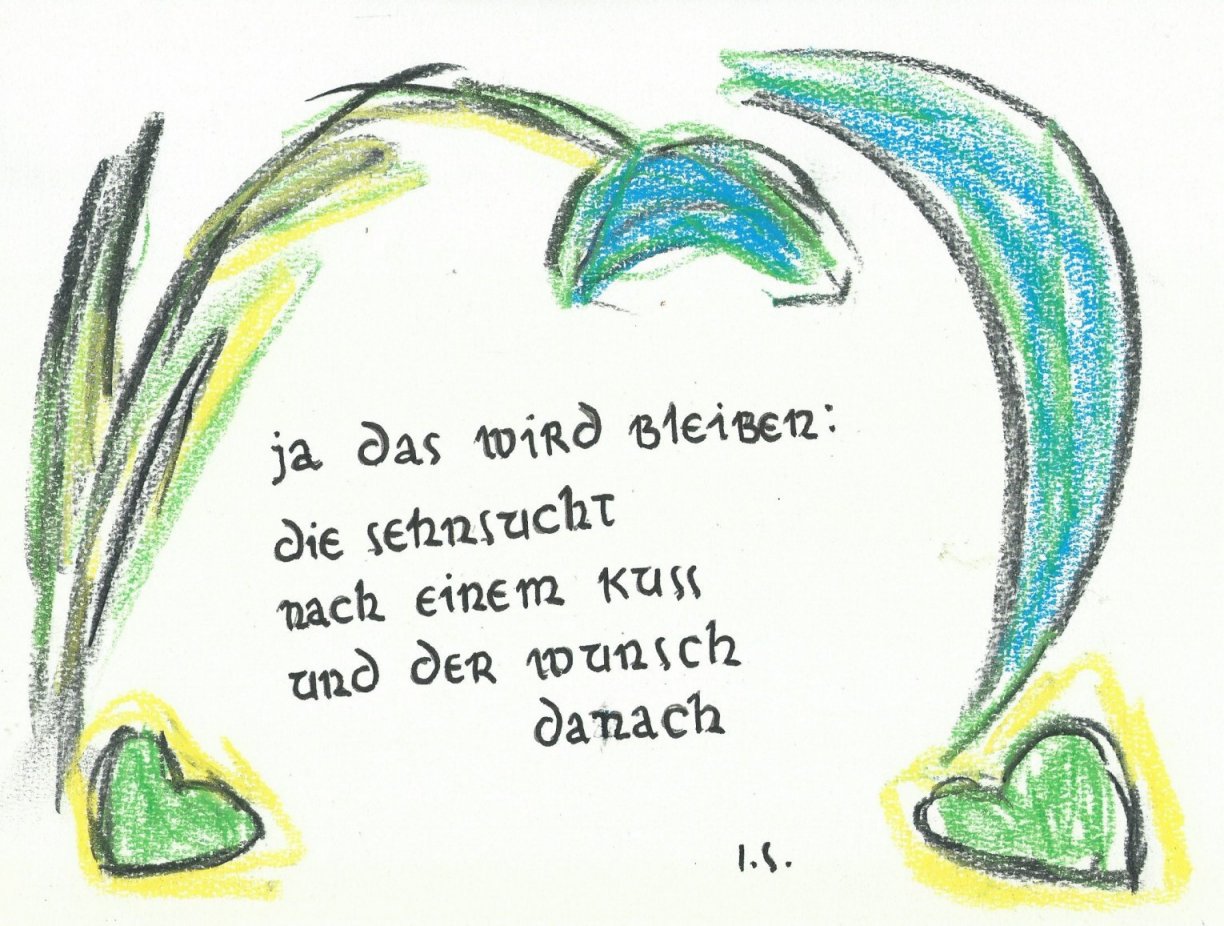 ja das wird bleiben:
die sehnsucht
nach einem kuss
und der wunsch
danach
I.S.